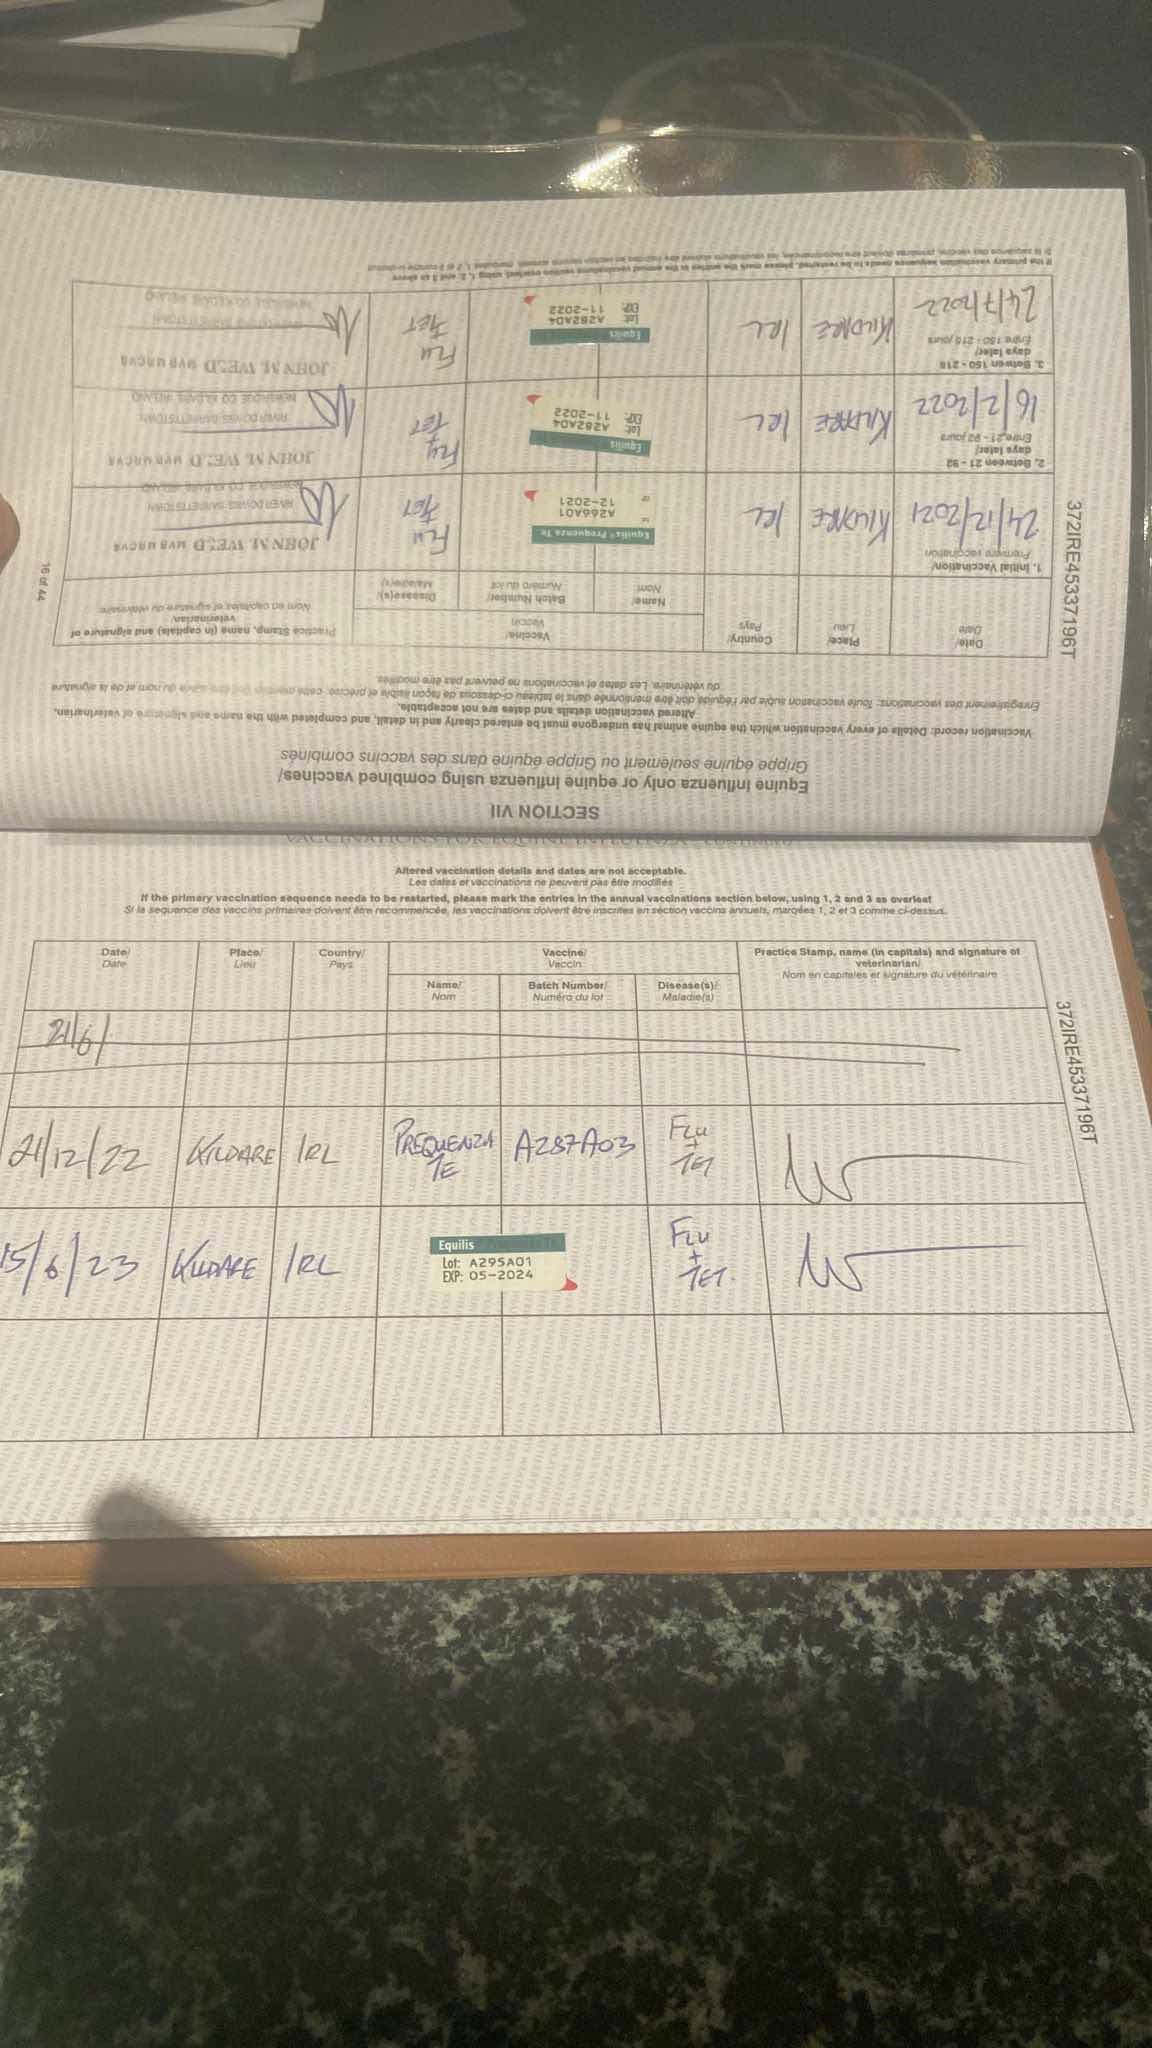 SECTION VII
Equine influenza only or equine influenza using combined vaccines/
Grippe équine seulement ou Grippe équine dans des vaccins combinés
Vaccination record: Details of every vaccination which the equine animal has undergone must be entered clearly and in detail, and completed with the name and signature of veterinarian.
Altered vaccination details and dates are not acceptable.
du vétérinaire. Les dates et vaccinations ne peuvent pas être modifiées.
Date/
Date
Place/
Lieu
Country/
Pays
Vaccine/
Vaccin
Name/
Nom
Batch Number/
Numéro du lot
Disease(s)/
Maladie(s)
Practice Stamp, name (in capitals) and signature of
veterinarian/
Nom en capitales et signature du vétérinaire
1. Initial Vaccination/
Première vaccination
24/12/2021
KILDARE
IRL
Equilis® Prequenza Te
A266A01
12-2021
FLU
+
TET
JOHN M.
2. Between 21 - 92
days later/
Entre 21 - 92 jours
16/2/2022
KILDARE
IRL
Equilis
Lot: A282A04
EXP: 11-2022
FLU
+
TET
JOHN M.
3. Betwen 150 - 215
days later/
Entre 150 - 215 jours
24/7/2022
KILDARE
IRL
Equilis
Lot: A282A04
EXP: 11-2022
FLU
+
TET
JOHN M.
If the primary vaccination sequence needs to be restarted, please mark the entries in the annual vaccinations section overleaf, using 1, 2 and 3 as above
372IRE45337196T
16 of 44
Altered vaccination details and dates are not acceptable.
Les dates et vaccinations ne peuvent pas être modifiés
If the primary vaccination sequence needs to be restarted, please mark the entries in the annual vaccinations section below, using 1, 2 and 3 as overleaf
Si la sequence des vaccins primaires doivent être recommencée, les vaccinations doivent être inscrites en section vaccins annuels, marqées 1, 2 et 3 comme ci-dessus.
Date/
Date
Place/
Lieu
Country/
Pays
Vaccine/
Vaccin
Name/
Nom
Batch Number/
Numéro du lot
Disease(s)/
Maladie(s)
Practice Stamp, name (in capitals) and signature of
veterinarian/
Nom en capitales et signature du vétérinaire
21/6/
21/12/22
KILDARE
IRL
PREQUENZA
TE
A287A03
FLU
+
TET
15/6/23
KILDARE
IRL
Equilis
Lot: A295A01
EXP: 05-2024
FLU
+
TET.
372IRE45337196T